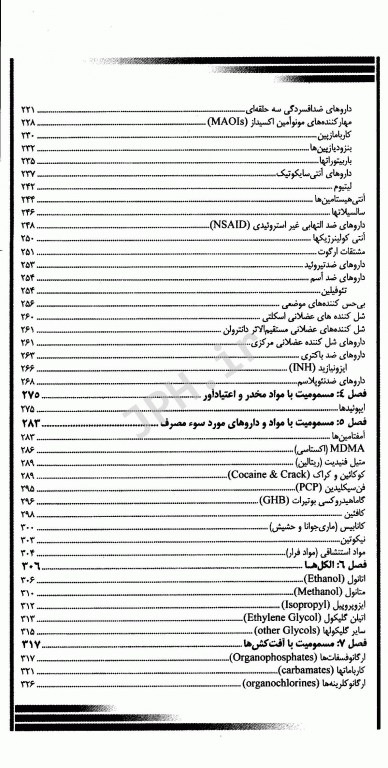 داروهای ضدافسردگی سه حلقه‌ای ۲۲۱
مهارکننده‌های مونوآمین اکسیداز (MAOIs) ۲۲۸
کاربامازپین ۲۳۰
بنزودیازپین‌ها ۲۳۲
باربیتوراتها ۲۳۵
داروهای آنتی‌سایکوتیک ۲۳۷
لیتیوم ۲۴۲
آنتی‌هیستامین‌ها ۲۴۴
سالسیلاتها ۲۴۶
داروهای ضد التهابی غیر استروئیدی (NSAID) ۲۴۸
آنتی کولینرژیکها ۲۵۰
مشتقات ارگوت ۲۵۱
داروهای ضدتیروئید ۲۵۳
داروهای ضد آسم ۲۵۴
تئوفیلین ۲۵۴
بی‌حس کننده‌های موضعی ۲۵۶
شل کننده های عضلانی اسکلتی ۲۶۰
شل کننده‌های عضلانی مستقیم‌الاثر دانترولن ۲۶۱
داروهای شل کننده عضلانی مرکزی ۲۶۱
داروهای ضد باکتری ۲۶۳
ایزونیازید (INH) ۲۶۶
داروهای ضدنئوپلاسم ۲۶۸
فصل ۴: مسمومیت با مواد مخدر و اعتیادآور ۲۷۵
اپیوئیدها ۲۷۵
فصل ۵: مسمومیت با مواد و داروهای مورد سوء مصرف ۲۸۳
آمفتامین‌ها ۲۸۳
MDMA (اکستاسی) ۲۸۶
متیل فنیدیت (ریتالین) ۲۸۹
کوکائین و کراک (Cocaine & Crack) ۲۸۹
فن‌سیکلیدین (PCP) ۲۹۵
گاماهیدروکسی بوتیرات (GHB) ۲۹۶
کافئین ۲۹۸
کانابیس (ماری‌جوانا و حشیش) ۳۰۰
نیکوتین ۳۰۳
مواد استنشاقی (مواد فرار) ۳۰۴
فصل ۶: الکل‌هـا ۳۰۶
اتانول (Ethanol) ۳۰۶
متانول (Methanol) ۳۱۰
ایزوپروپیل (Isopropyl) ۳۱۲
اتیلن گلیکول (Ethylene Glycol) ۳۱۳
سایر گلیکولها (other Glycols) ۳۱۵
فصل ۷: مسمومیت با آفت‌کش‌ها ۳۱۷
ارگانوفسفات‌ها (Organophosphates) ۳۱۷
کارباماتها (carbamates) ۳۲۱
ارگانوکلرینه‌ها (organochlorines) ۳۲۶
JPH.ir